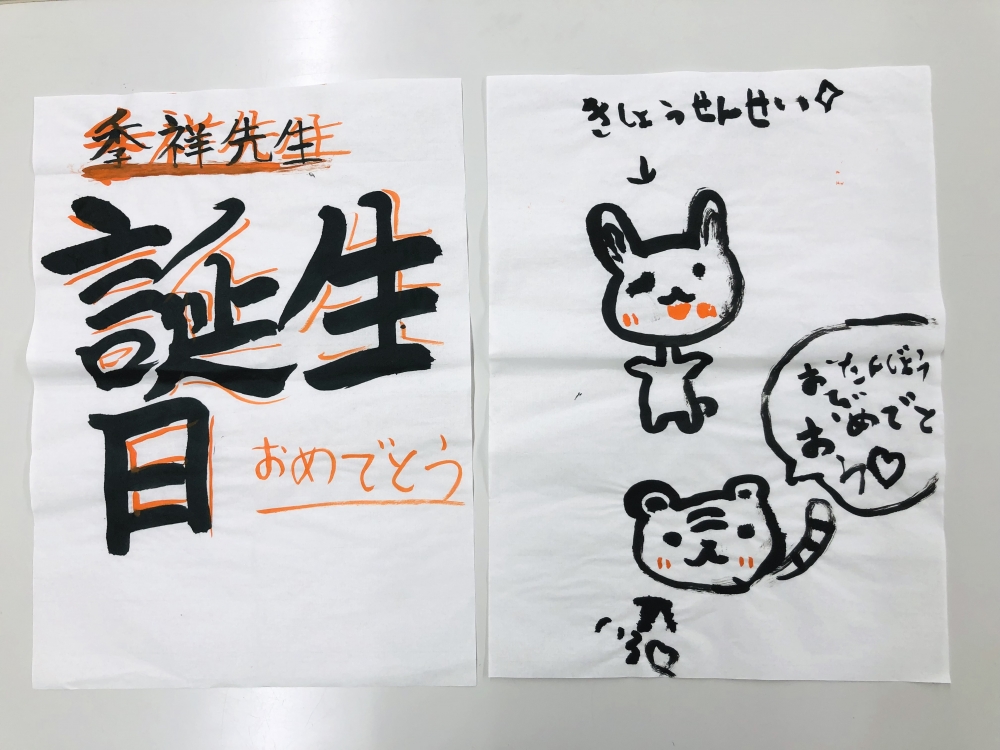 季祥先生
誕生
日
おめでとう
きしょうせんせい
↓
おたんじょう
びおめでと
う♡